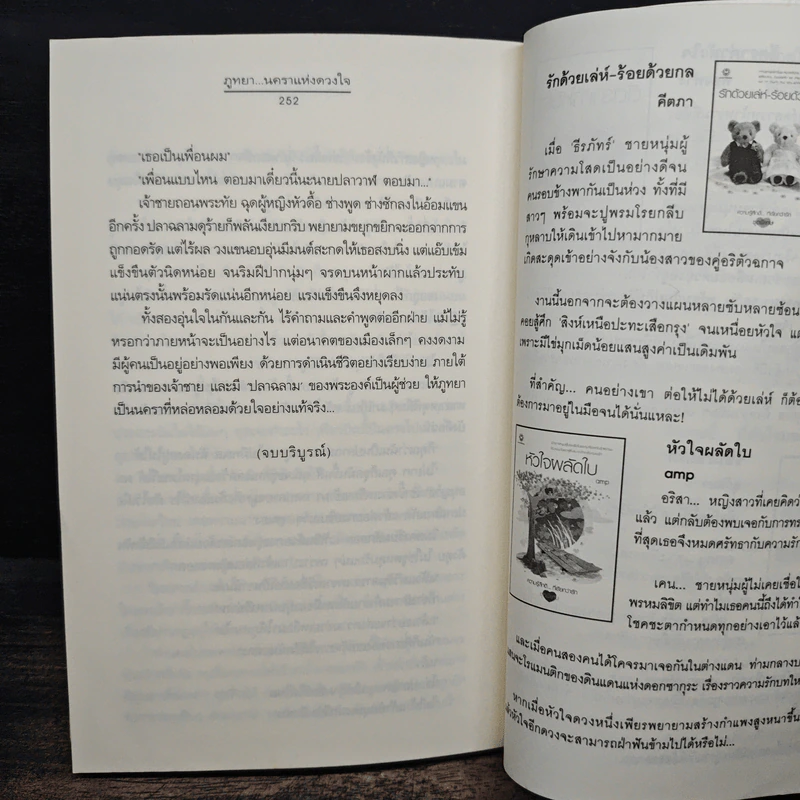 ภูทยา...นคราแห่งดวงใจ
252
"เธอเป็นเพื่อนผม"
"เพื่อนแบบไหน ตอบมาเดี๋ยวนี้นะนายปลาวาฬ ตอบมา..."
เจ้าชายถอนพระทัย ฉุดผู้หญิงหัวดื้อ ช่างพูด ช่างซักลงในอ้อมแขน
อีกครั้ง ปลาฉลามดุร้ายก็พลันเงียบกริบ พยายามขยุกขยิกจะออกจากการ
ถูกกอดรัด แต่ไร้ผล วงแขนอบอุ่นมีมนต์สะกดให้เธอสงบนิ่ง แต่แอบเข้ม
แข็งขืนตัวนิดหน่อย จนริมฝีปากนุ่มๆ จรดบนหน้าผากแล้วประทับ
แน่นตรงนั้นพร้อมรัดแน่นอีกหน่อย แรงแข็งขืนจึงหยุดลง
ทั้งสองอุ่นใจในกันและกัน ไร้คำถามและคำพูดต่ออีกฝ่าย แม้ไม่รู้
หรอกว่าภายหน้าจะเป็นอย่างไร แต่อนาคตของเมืองเล็กๆ คงงดงาม
มีผู้คนเป็นอยู่อย่างพอเพียง ด้วยการดำเนินชีวิตอย่างเรียบง่าย ภายใต้
การนำของเจ้าชาย และมี 'ปลาฉลาม' ของพระองค์เป็นผู้ช่วย ให้ภูทยา
เป็นนคราที่หล่อหลอมด้วยใจอย่างแท้จริง...
(จบบริบูรณ์)
รักด้วยเล่ห์-ร้อยด้วยกล
คีตภา
รักด้วยเล่ห์-ร้อยด้วย
เมื่อ 'ธีรภัทร์' ชายหนุ่มผู้
รักษาความโสดเป็นอย่างดีจน
คนรอบข้างพากันเป็นห่วง ทั้งที่มี
สาวๆ พร้อมจะปูพรมโรยกลีบ
กุหลาบให้เดินเข้าไปหามากมาย
เกิดสะดุดเข้าอย่างจังกับน้องสาวของคู่อริตัวฉกาจ
งานนี้นอกจากจะต้องวางแผนหลายซับหลายซ้อน
คอยสู้ศึก 'สิงห์เหนือปะทะเสือกรุง' จนเหนื่อยหัวใจ
เพราะมีไข่มุกเม็ดน้อยแสนสูงค่าเป็นเดิมพัน
ที่สำคัญ... คนอย่างเขา ต่อให้ไม่ได้ด้วยเล่ห์ ก็ต้อ
ต้องการมาอยู่ในมือจนได้นั่นแหละ!
หัวใจผลัดใบ
amp
หัวใจผลัดใบ
amp
อริสา... หญิงสาวที่เคยคิดว
แล้ว แต่กลับต้องพบเจอกับการทร
ที่สุดเธอจึงหมดศรัทธากับความรัก
เคน... ชายหนุ่มผู้ไม่เคยเชื่อใ
พรหมลิขิต แต่ทำไมเธอคนนี้ถึงได้ทำใ
โชคชะตากำหนดทุกอย่างเอาไว้แล้
และเมื่อคนสองคนได้โคจรมาเจอกันในต่างแดน ท่ามกลางบ
และโรแมนติกของดินแดนแห่งดอกซากุระ เรื่องราวความรักบทให
หากเมื่อหัวใจดวงหนึ่งเพียรพยายามสร้างกำแพงสูงหนาขึ้น
แล้วหัวใจอีกดวงจะสามารถฝ่าฟันข้ามไปได้หรือไม่...